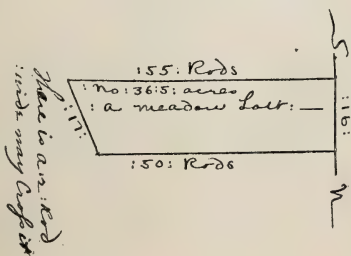 S
:55: Rods
: no: 36:5: acres
: a meadow Lott: —
:16:
:17:
:50: Rods
n
there is a 12: Rod
wide may Cross it